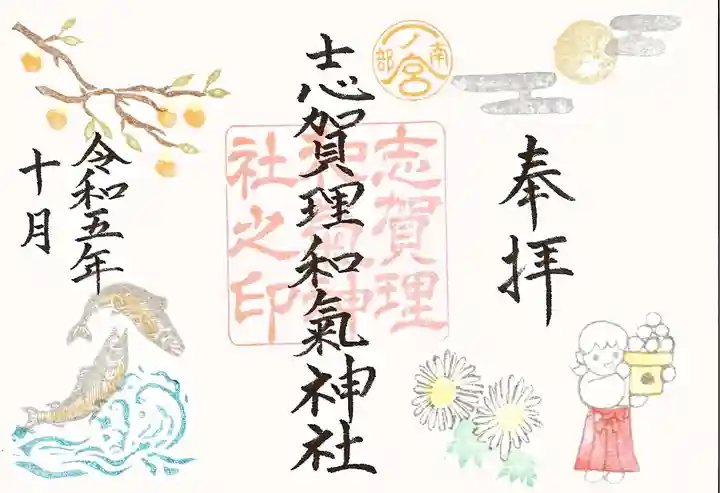 奉拝
南部一ノ宮
志賀理和氣神社
志賀理
和氣神
社之印
令和五年
十月